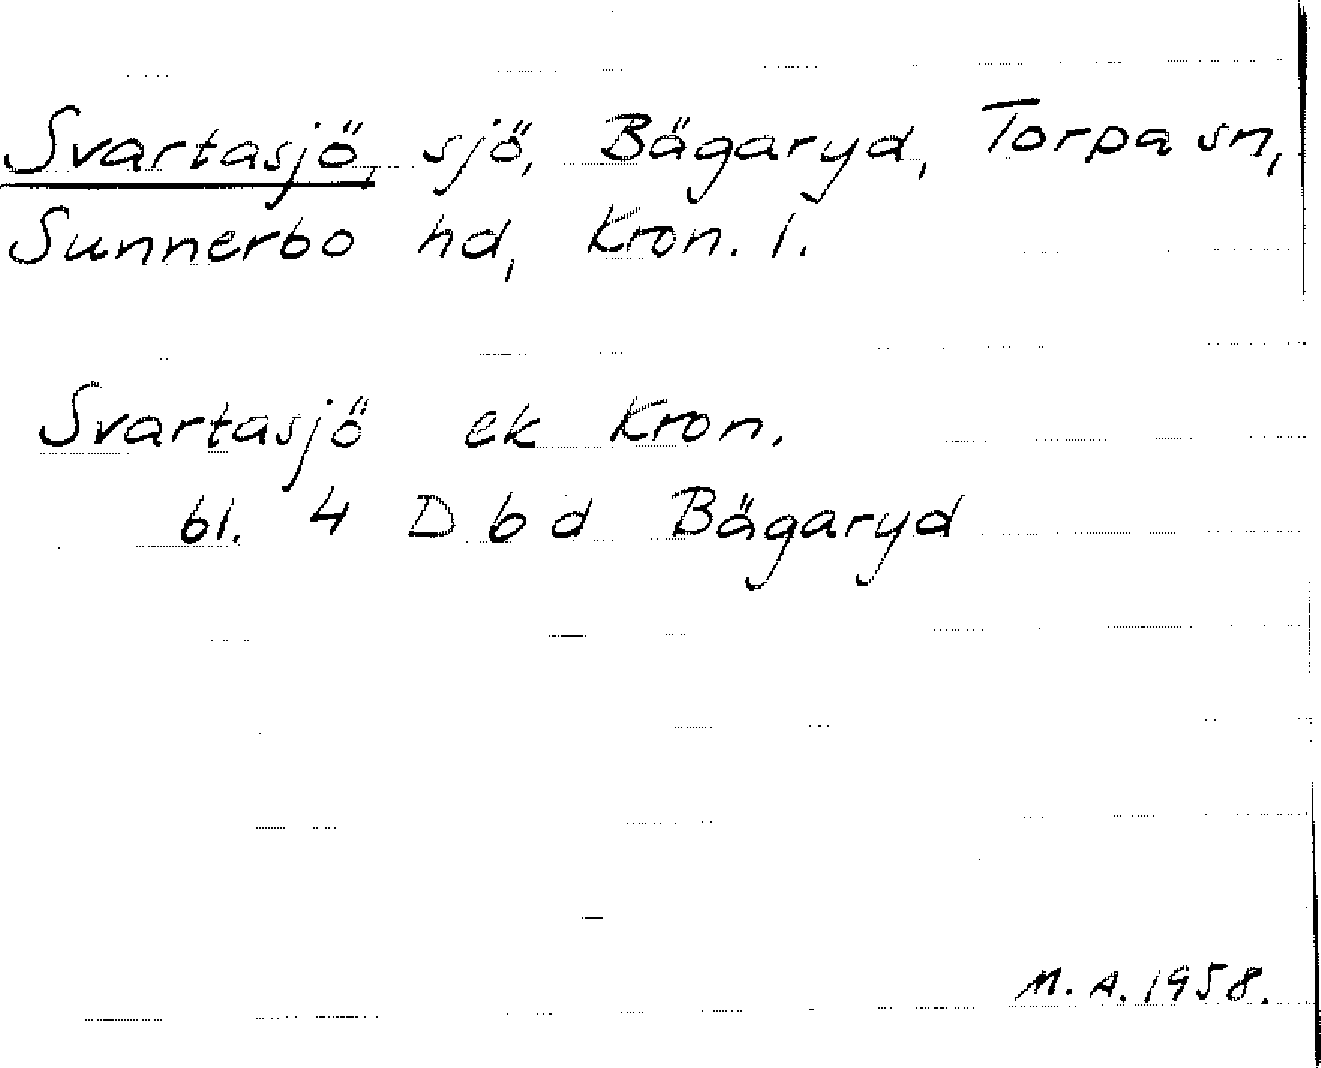 Svartasjö, sjö, Bägaryd, Torpa sn,
Sunnerbo hd, Kron. l.
Svartasjö ek Kron.
bl. 4 D b d Bägaryd
M. A. 1958.